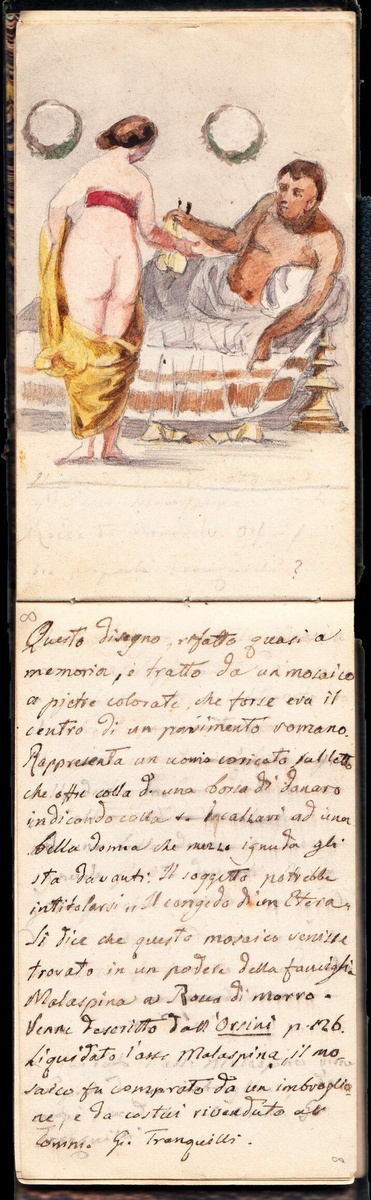 Questo disegno, rifatto quasi a
memoria, è tratto da un mosaico
a pietre colorate, che forse era il
centro di un pavimento romano.
Rappresenta un uomo coricato sul letto
che offre colla d. una borsa di danaro
indicando colla s. i calzari ad una
bella donna che mezzo ignuda gli
sta davanti. Il soggetto potrebbe
intitolarsi „ Il congedo di un Etera „
Si dice che questo mosaico venisse
trovato in un podere della famiglia
Malaspina a Rocca di morro.
Venne descritto dall'Orsini p. 826.
Liquidato l'asse Malaspina, il mo
saico fu comprato da un imbroglio
ne, e da costui rivenduto al
Comm. G. Tranquilli.